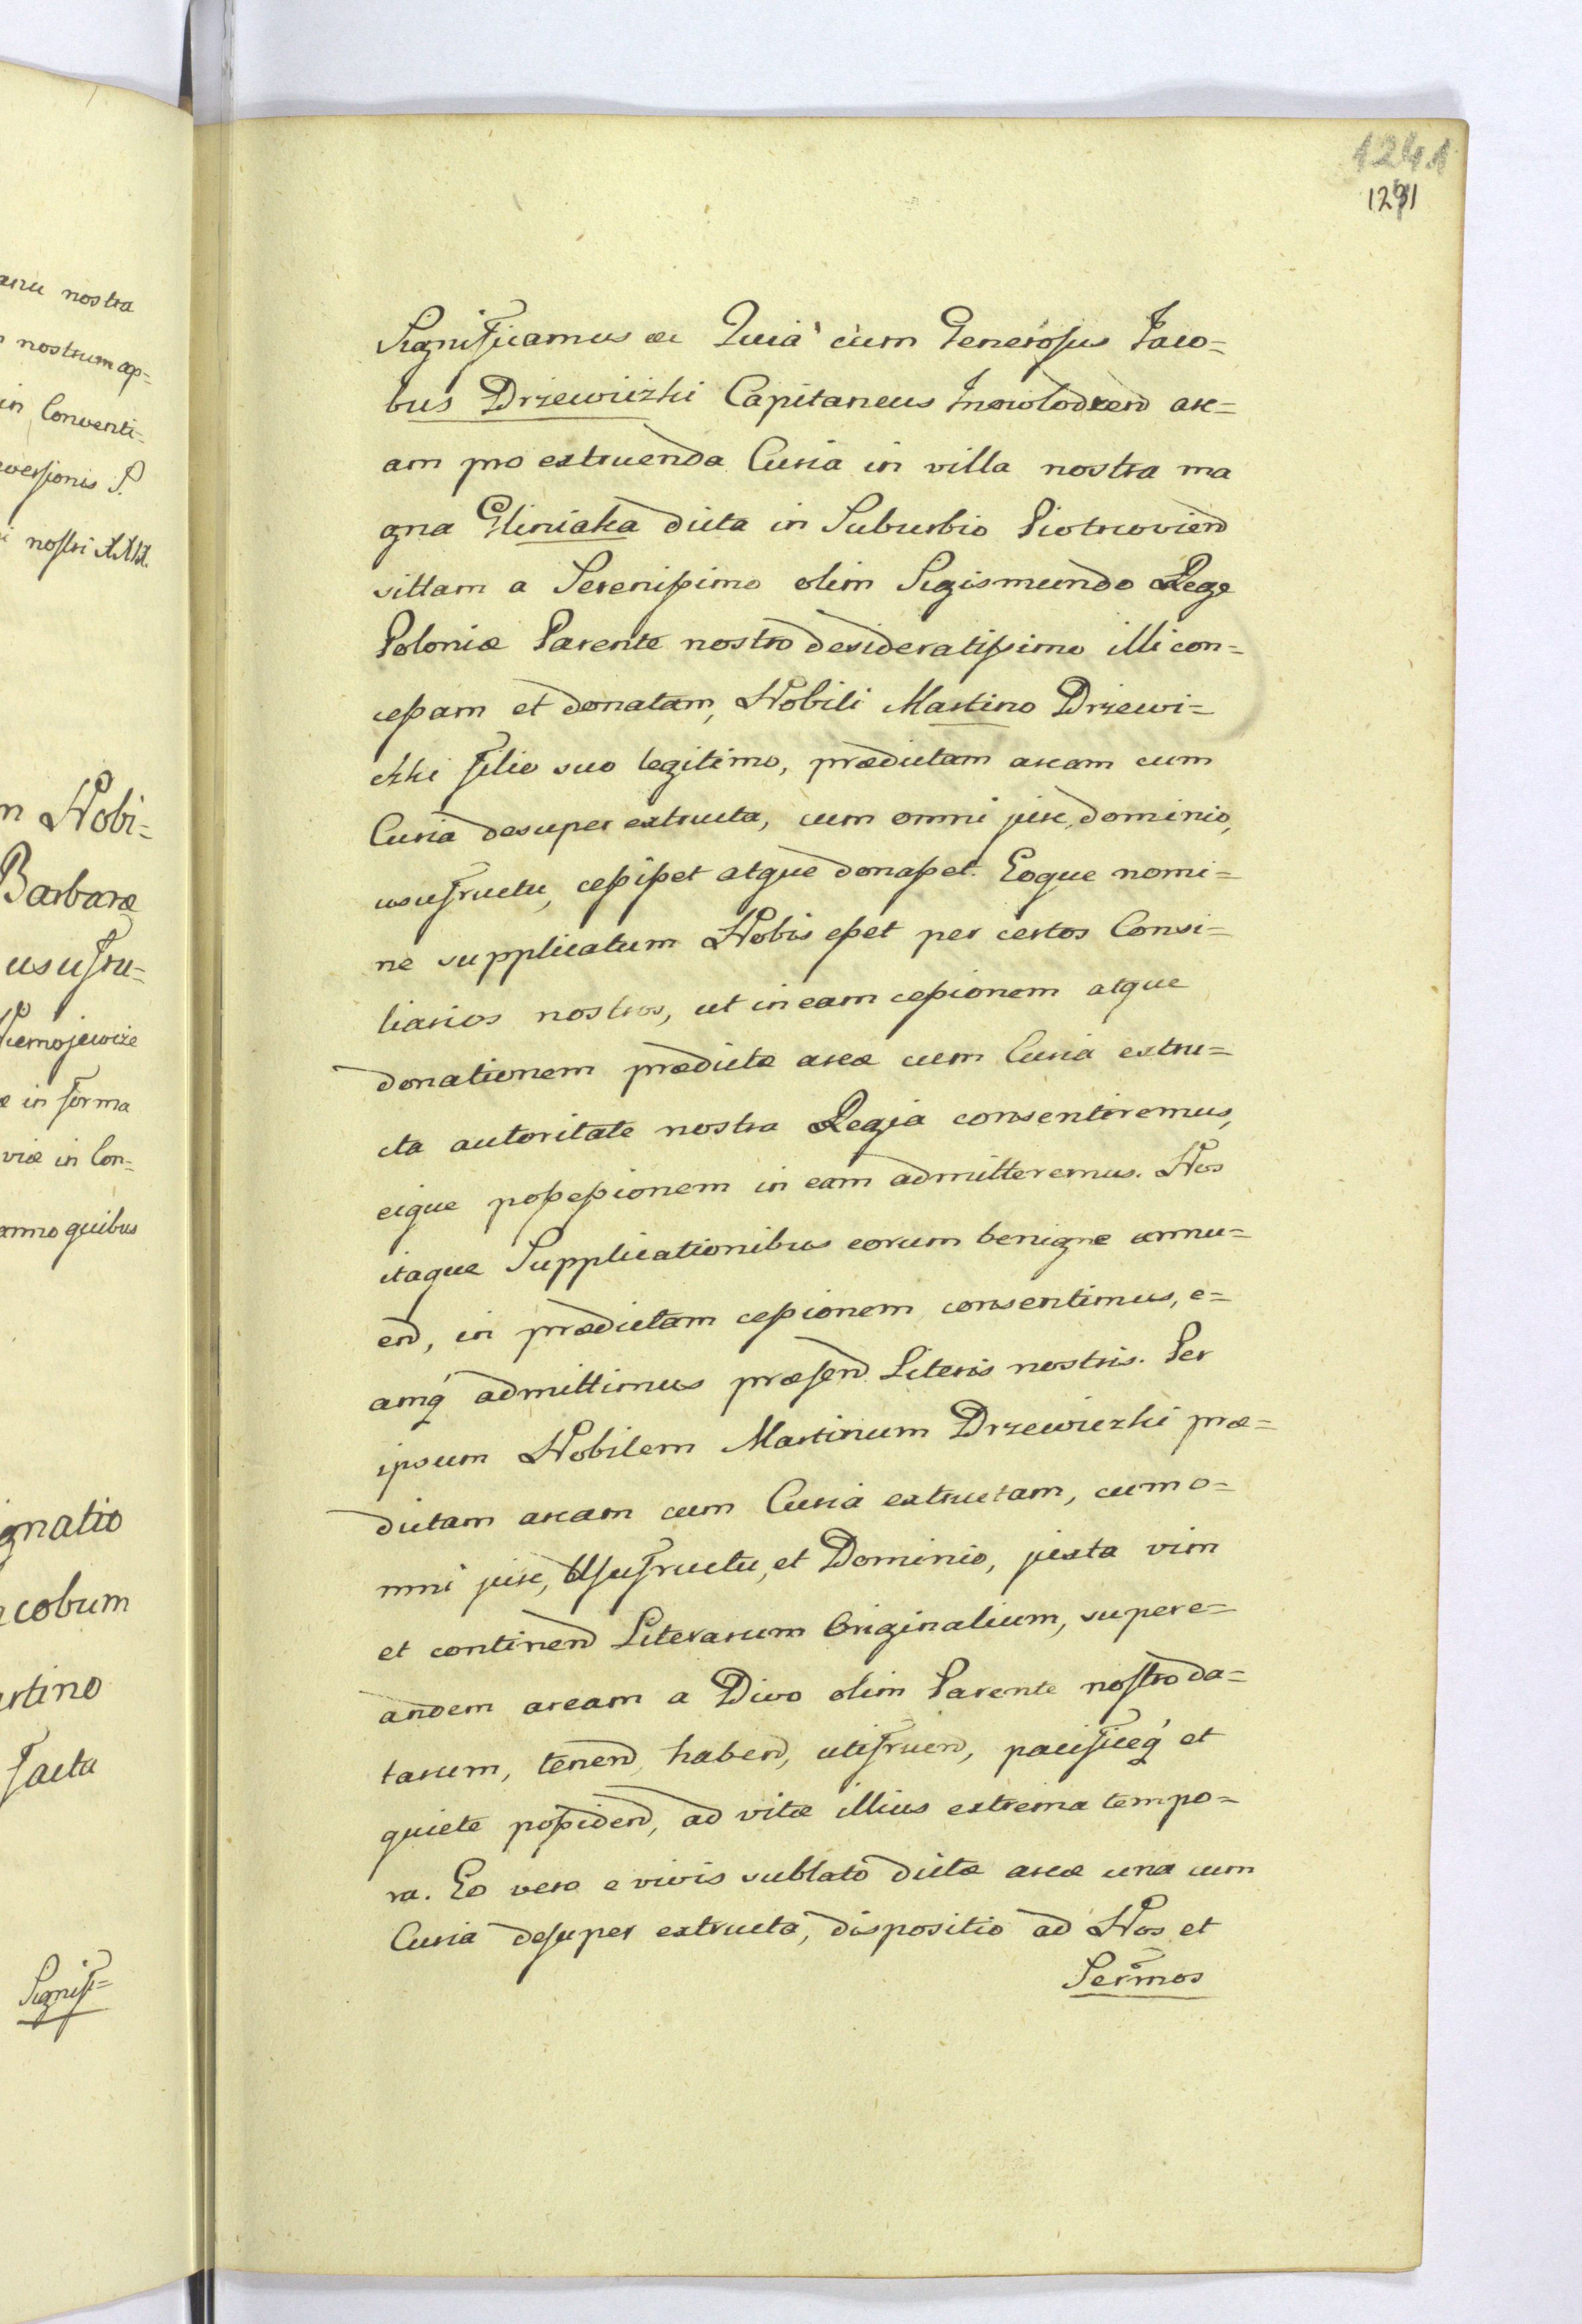 anu nostra
nostrum ap=
in Conventi=
versionis S.
i nostri XXIX.
m Nobi=
Barbaræ
usufru=
Niemojewicze
æ in forma
viæ in Con=
anno quibus
gnatio
acobum
artino
facta
Signifi=
1241
1291
Significamus &c Quia cum Generosus Jaco=
bus Drzewiczki Capitaneus Inowlodzen are=
am pro extruenda Curia in villa nostra ma
gna Gliniaka dicta in Suburbio Piotrcovien
sittam a Serenissimo olim Sigismundo Rege
Poloniæ Parente nostro desideratissimo illi con=
cessam et donatam, Nobili Martino Drzewi=
czki filio suo legitimo, prædictam aream cum
Curia desuper extructa, cum omni jure, dominio,
usufructu, cessisset atque donasset. Eoque nomi=
ne supplicatum Nobis esset per certos Consi=
liarios nostros, ut in eam cessionem atque
donationem prædictæ areæ cum Curia extru=
cta autoritate nostra Regia consentiremus,
eique possessionem in eam admitteremus. Nos
itaque Supplicationibus eorum benigne annu=
en, in prædictam cessionem consentimus, e=
amq́ admittimus præsen Literis nostris. Per
ipsum Nobilem Martinum Drzewiczki præ=
dictam aream cum Curia extructam, cum o=
mni jure, Usufructu, et Dominio, juxta vim
et continen Literarum Originalium, super e=
andem aream a Divo olim Parente nostro da=
tarum, tenen, haben, utifruen, pacificeq́ et
quiete possiden, ad vitæ illius extrema tempo=
ra. Eo vero e vivis sublato dictæ areæ una cum
Curia desuper extructa, dispositio ad Nos et
Sermos